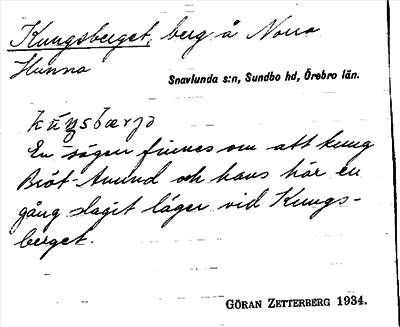 Kungsberget, berg å Norra
Hunna
Snavlunda s:n, Sundbo hd, Örebro län.
kúŋsbærjə
En sägen finnes om att kung
Bröt-Anund och hans här en
gång slagit läger vid Kungs-
berget.
GÖRAN ZETTERBERG 1934.